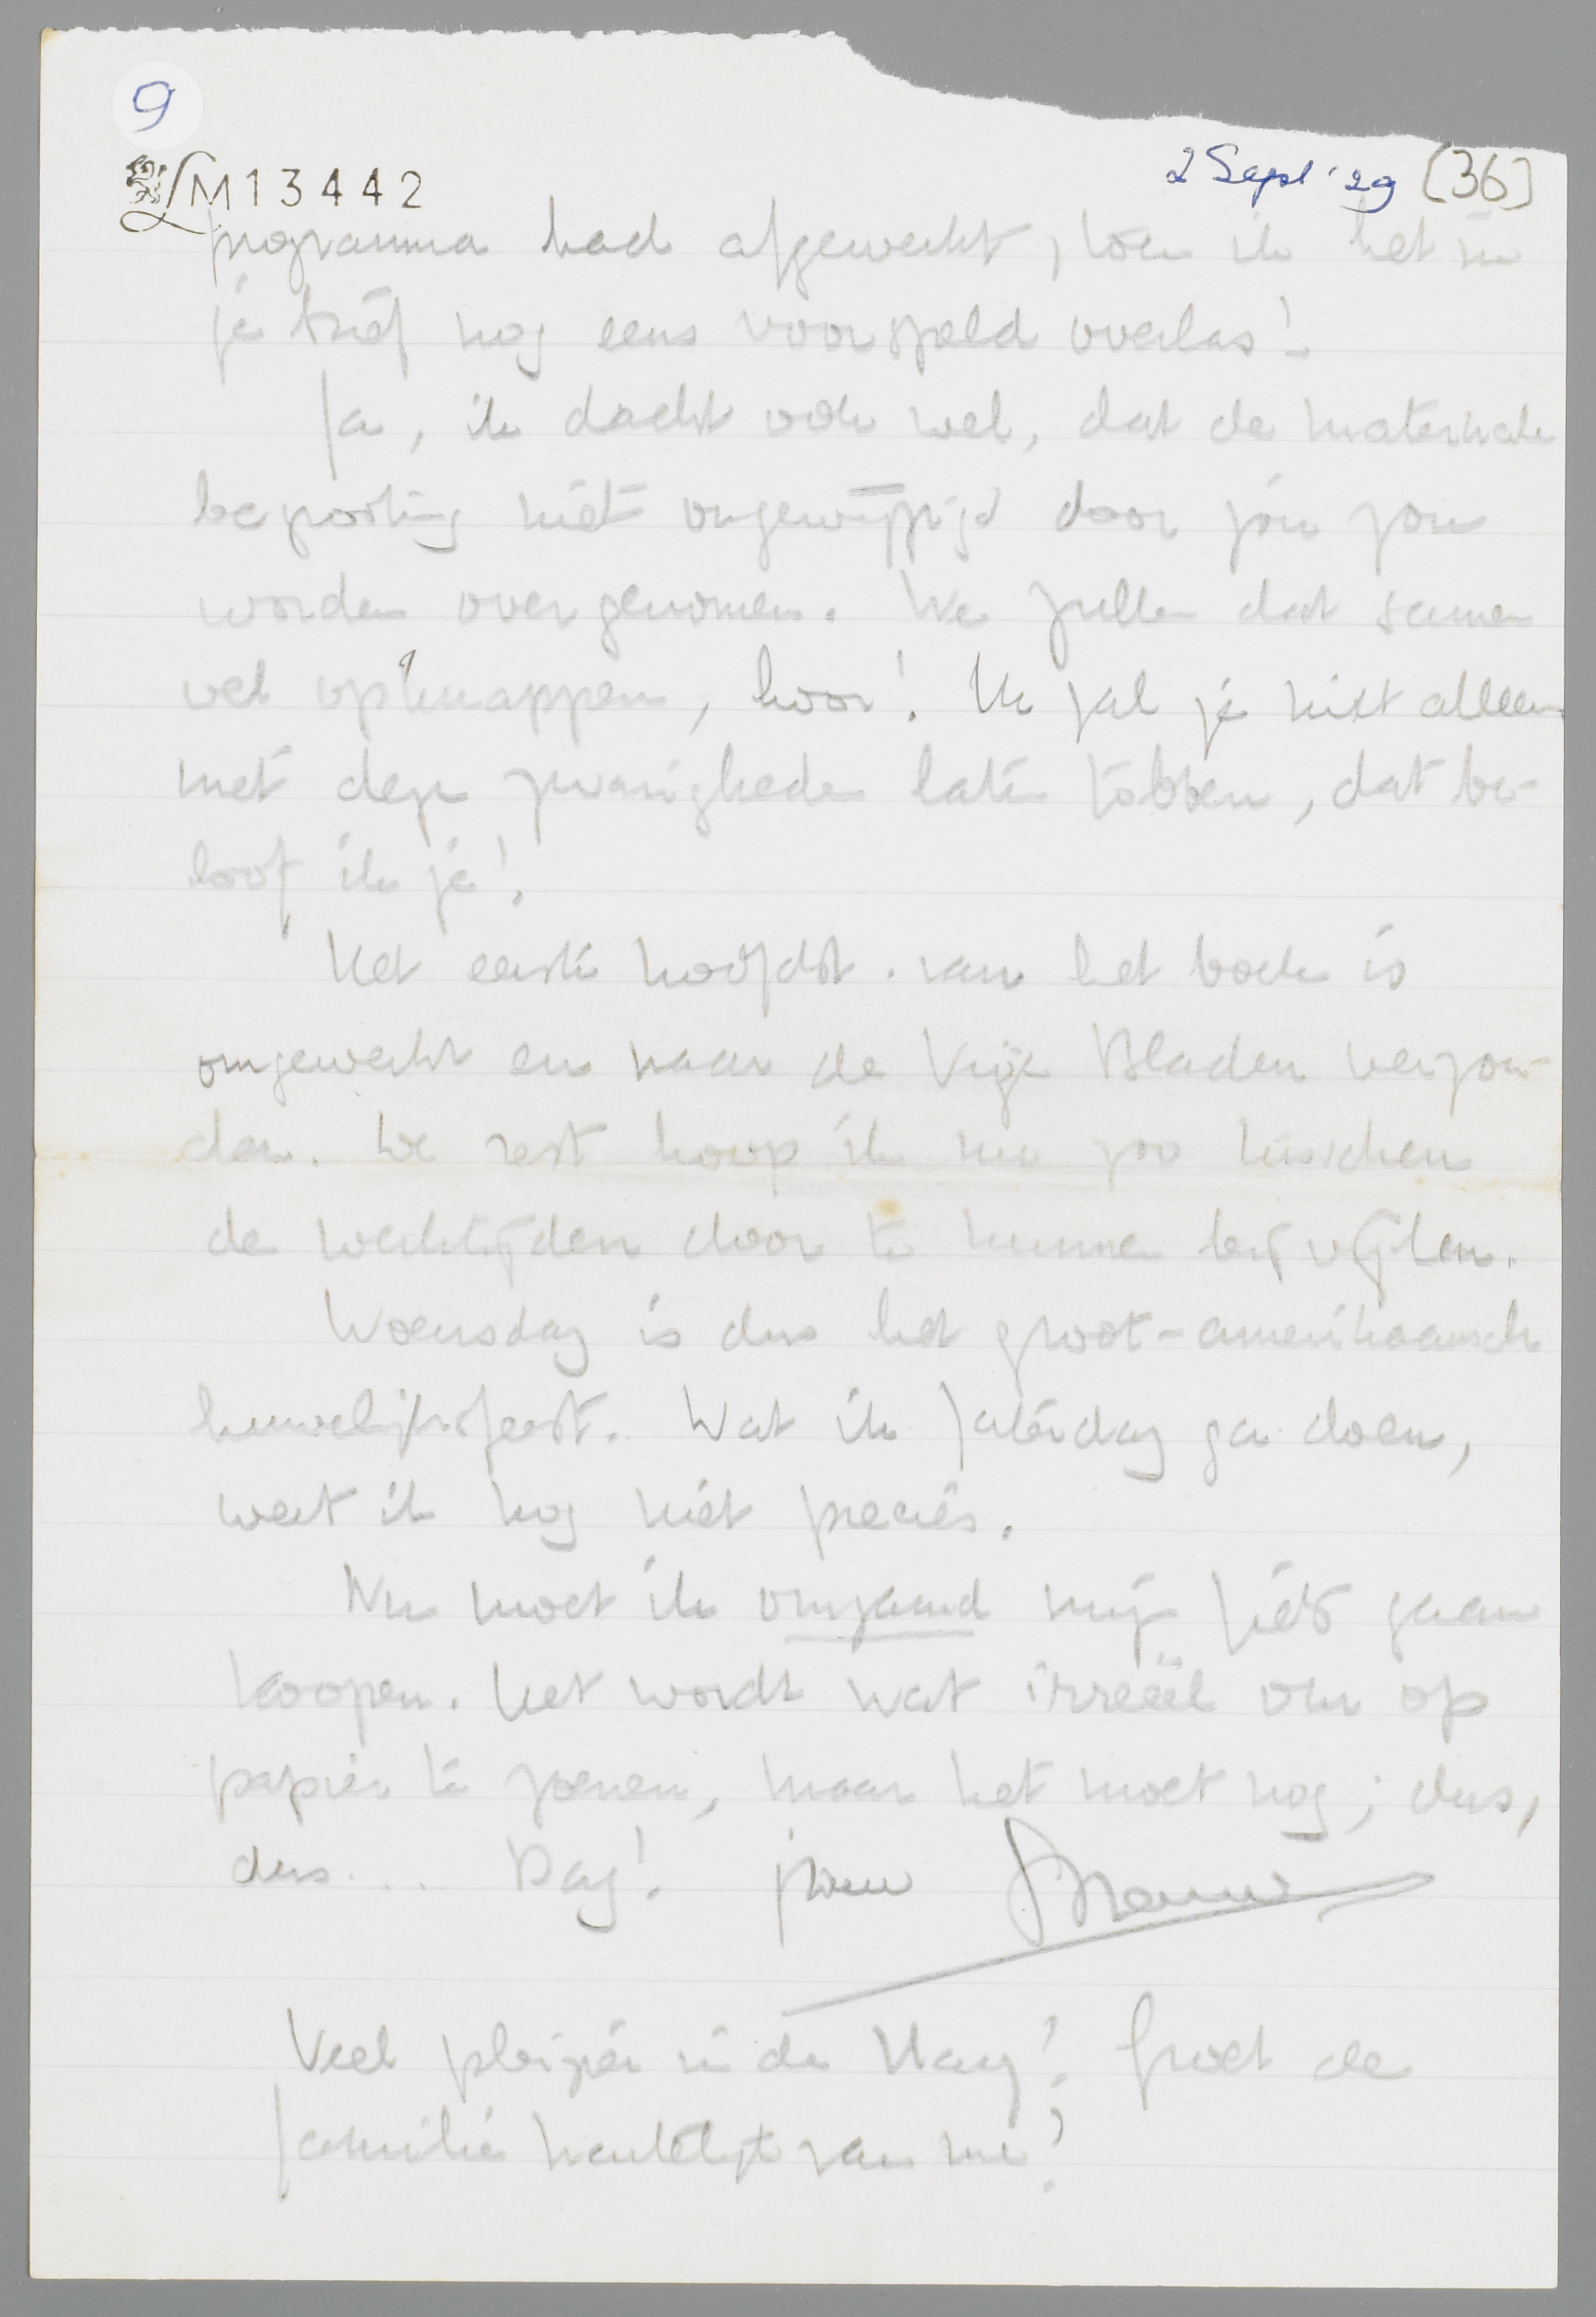 9
LM13442
2 Sept '29 [36]
programma had afgewerkt, toen ik het in
je brief nog eens voorspeld overlas!
Ja, ik dacht ook wel, dat de maternale
begrooting niet ongewijzigd door jou zou
worden overgenomen. We zullen dat samen
wel opknappen, hoor! Ik zal je niet alleen
met deze zwarigheden laten tobben, dat be-
loof ik je!
Het eerste hoofdst. van het boek is
omgewerkt en naar de Vrije Bladen verzon-
den. De rest hoop ik nu zoo tusschen
de werktijden door te kunnen bijvijlen.
Woensdag is dus het groot-amerikaansch
huwelijksfeest. Wat ik Zaterdag ga doen,
weet ik nog niet precies.
Nu moet ik omgaand mijn fiets gaan
koopen. Het wordt wat irreëel om op
papier te zoenen, maar het moet nog; dus,
dus.... Dag! jouw Menno
Veel plezier in den Haag! Groet de
familie hartelijk van me!